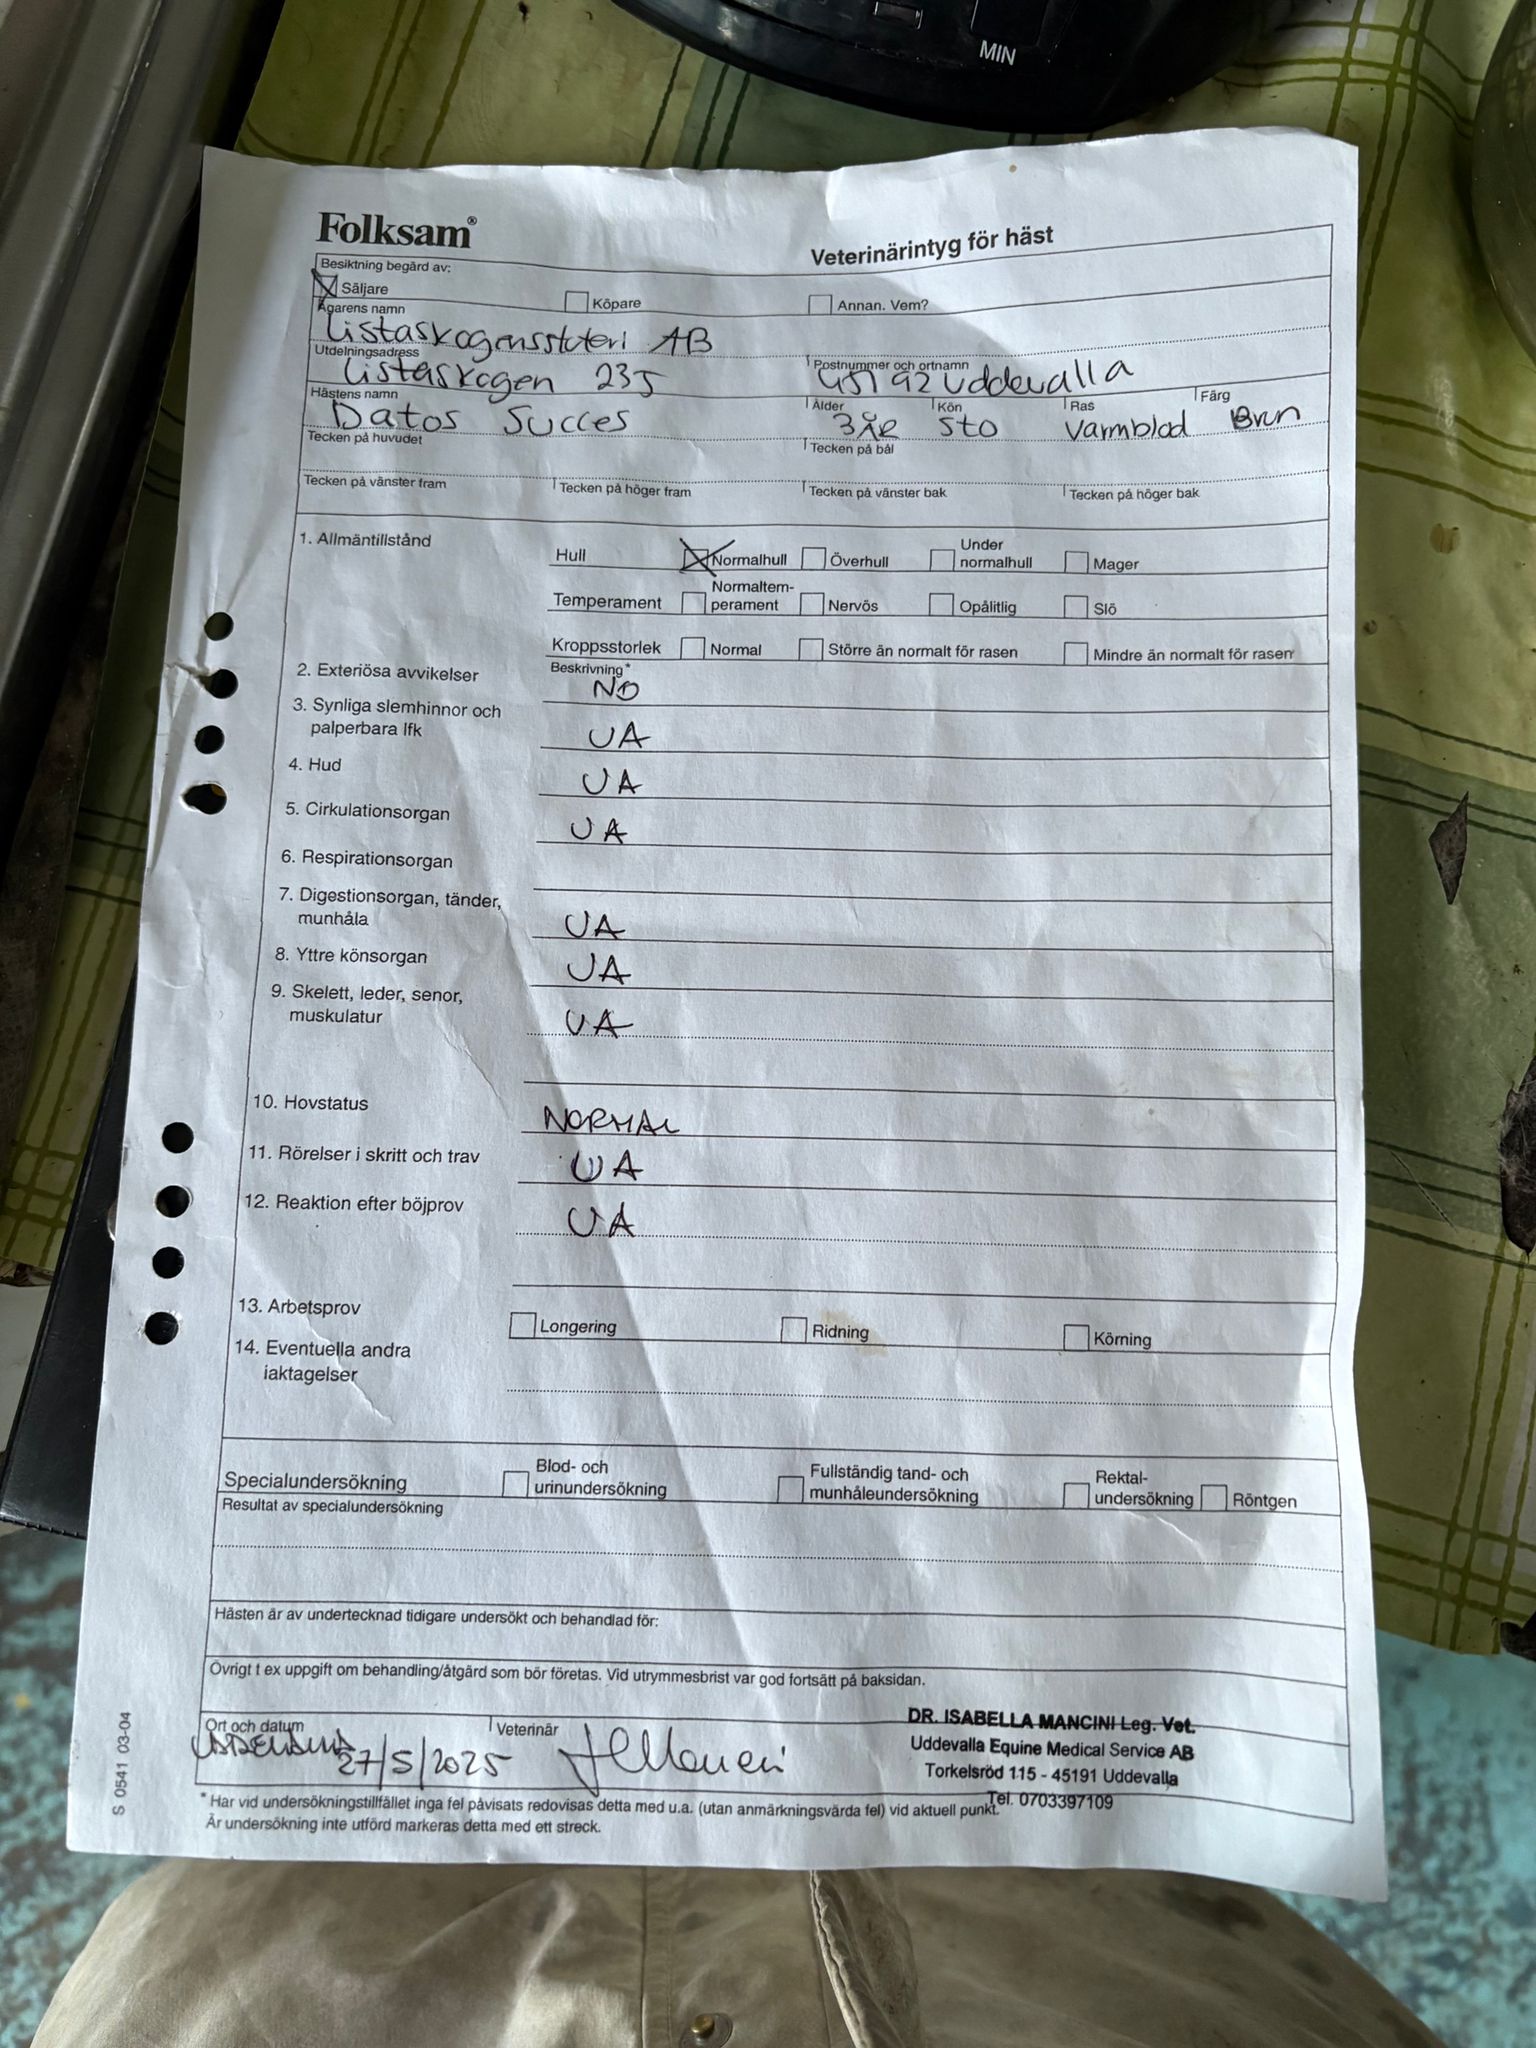 MIN
Folksam®
Veterinärintyg för häst
Besiktning begärd av:
Säljare Köpare Annan. Vem?
Ägarens namn
Listaskogensstuteri AB
Utdelningsadress Postnummer och ortnamn
Listaskogen 235 45192 Uddevalla
Hästens namn Ålder Kön Ras Färg
Datos Succes 3 ÅR Sto Varmblod Brun
Tecken på huvudet Tecken på bål
Tecken på vänster fram Tecken på höger fram Tecken på vänster bak Tecken på höger bak
1. Allmäntillstånd
Hull Normalhull Överhull Under normalhull Mager
Temperament Normaltem-perament Nervös Opålitlig Slö
Kroppsstorlek Normal Större än normalt för rasen Mindre än normalt för rasen
Beskrivning*
2. Exteriösa avvikelser
3. Synliga slemhinnor och
palperbara lfk UA
4. Hud UA
5. Cirkulationsorgan UA
6. Respirationsorgan
7. Digestionsorgan, tänder,
munhåla UA
8. Yttre könsorgan UA
9. Skelett, leder, senor,
muskulatur UA
10. Hovstatus NORMAL
11. Rörelser i skritt och trav UA
12. Reaktion efter böjprov UA
13. Arbetsprov Longering Ridning Körning
14. Eventuella andra
iaktagelser
Specialundersökning Blod- och urinundersökning Fullständig tand- och munhåleundersökning Rektal-undersökning Röntgen
Resultat av specialundersökning
Hästen är av undertecknad tidigare undersökt och behandlad för:
Övrigt t ex uppgift om behandling/åtgärd som bör företas. Vid utrymmesbrist var god fortsätt på baksidan.
Ort och datum Veterinär
27/5/2025
DR. ISABELLA MANCINI Leg. Vet.
Uddevalla Equine Medical Service AB
Torkelsröd 115 - 45191 Uddevalla
Tel. 0703397109
* Har vid undersökningstillfället inga fel påvisats redovisas detta med u.a. (utan anmärkningsvärda fel) vid aktuell punkt.
Är undersökning inte utförd markeras detta med ett streck.
S 0541 03-04